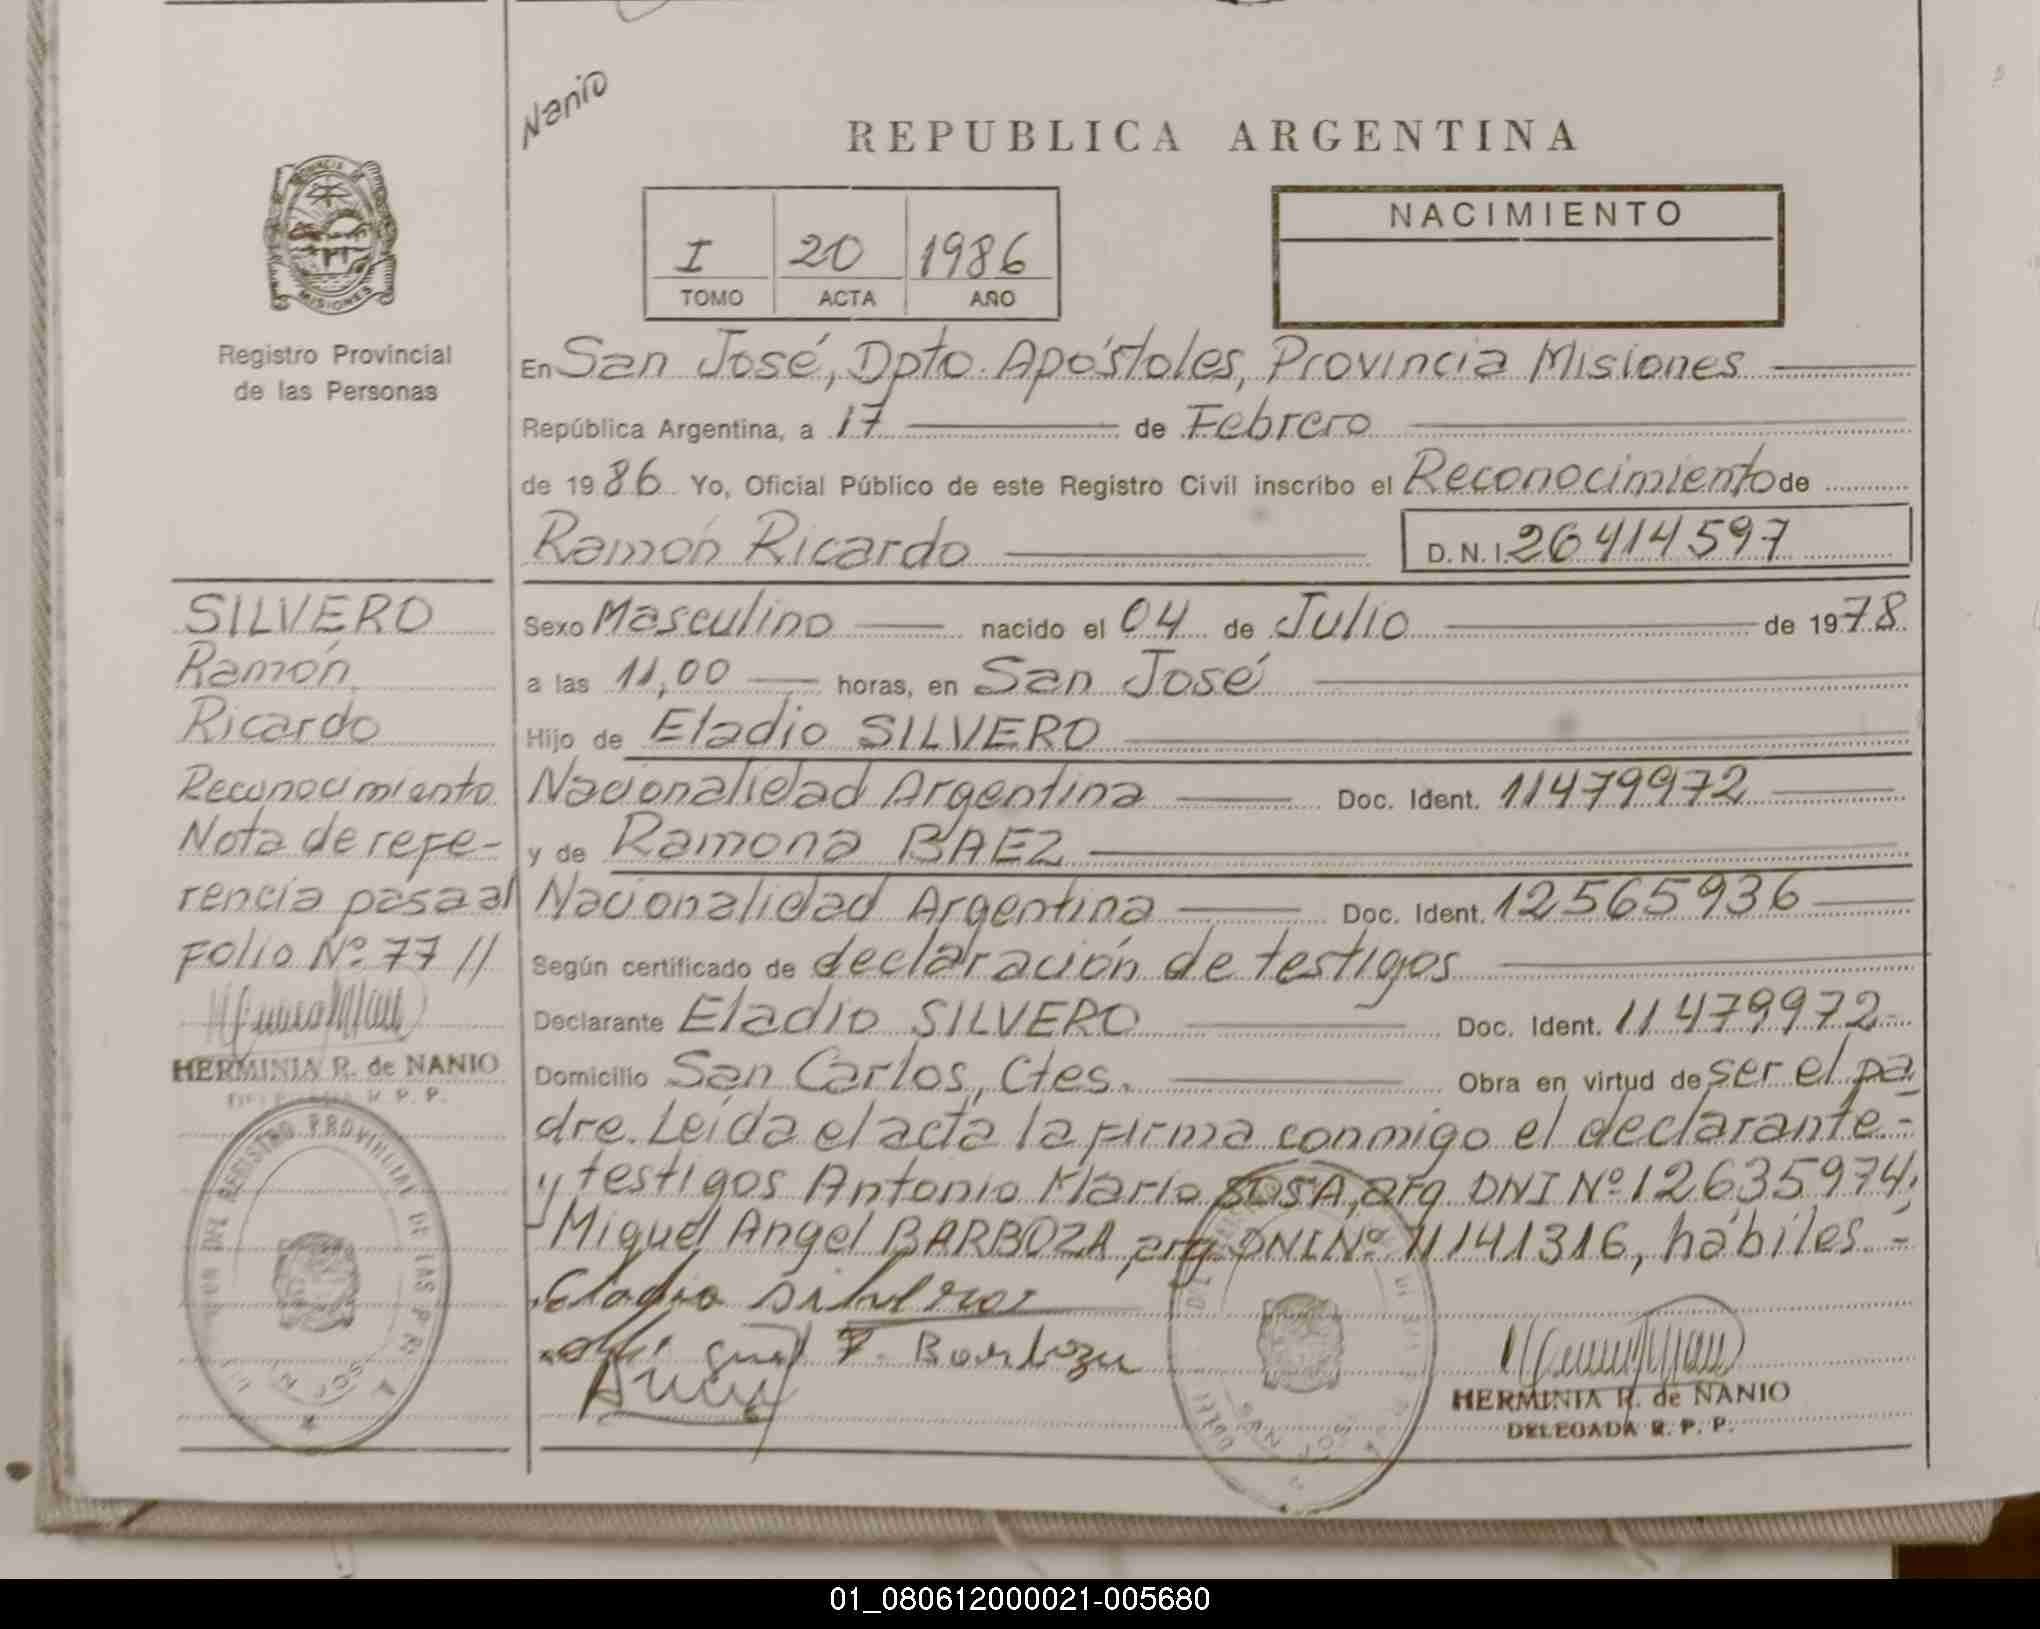 Nanio
REPUBLICA ARGENTINA
PROVINCIA DE
MISIONES
Registro Provincial
de las Personas
I 20 1986
TOMO ACTA AÑO
NACIMIENTO
En San José, Dpto. Apóstoles, Provincia Misiones
República Argentina, a 17 de Febrero
de 1986 Yo, Oficial Público de este Registro Civil inscribo el Reconocimiento de
Ramón Ricardo D.N.I. 26414597
SILVERO
Ramón
Ricardo
Reconocimiento
Nota de refe-
rencia pasa al
Folio Nº 77 //
HERMINIA R. de NANIO
DELEGADA R. P. P.
Sexo Masculino nacido el 04 de Julio de 1978
a las 11,00 horas, en San José
Hijo de Eladio SILVERO
Nacionalidad Argentina Doc. Ident. 11479972
y de Ramona BAEZ
Nacionalidad Argentina Doc. Ident. 12565936
Según certificado de declaración de testigos
Declarante Eladio SILVERO Doc. Ident. 11479972-
Domicilio San Carlos, Ctes. Obra en virtud de ser el pa
dre. Leída el acta la firma conmigo el declarante.-
y testigos Antonio Mario SOSA, arg. DNI Nº 12635974,
Miguel Angel BARBOZA, arg. DNI Nº 11141316, hábiles.-
Eladio Silvero
Barboza
HERMINIA R. de NANIO
DELEGADA R. P. P.
REGISTRO PROVINCIAL DE LAS
01_080612000021-005680